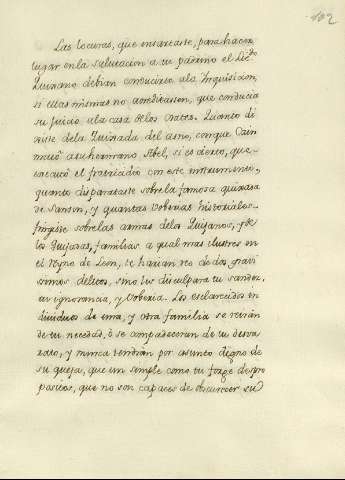 102
Las locuras, que ensartaste, para hacer
lugar en la salutacion a tu paysano el Lic.do
Quixano debian conducirte a la Inquisicion,
si ellas mismas no acreditasen, que conducia
tu juicio a la casa de los Orates. Quanto di
xiste de la Quixada del asno, con que Cain
mató a su hermano Abel, si es cierto, que
executó el fratricidio con este instrumento,
quanto disparataste sobre la famosa quixada
de Sanson, y quantas boberias historiales
fingiste sobre las armas de los Quijanos, y de
los Quijadas, familias a qual mas ilustres en
el Reyno de Leon, te harian reo de dos gravi
simos delitos, sino los disculpara tu sandez,
tu ignorancia, y boberia. Los esclarecidos in
dividuos de una, y otra familia se reirán
de tu necedad, ò se compadeceran de tu desva
rio, y nunca tendran por asunto digno de
su queja, que un simple como tu forge despro
positos, que no son capaces de obscurecer su